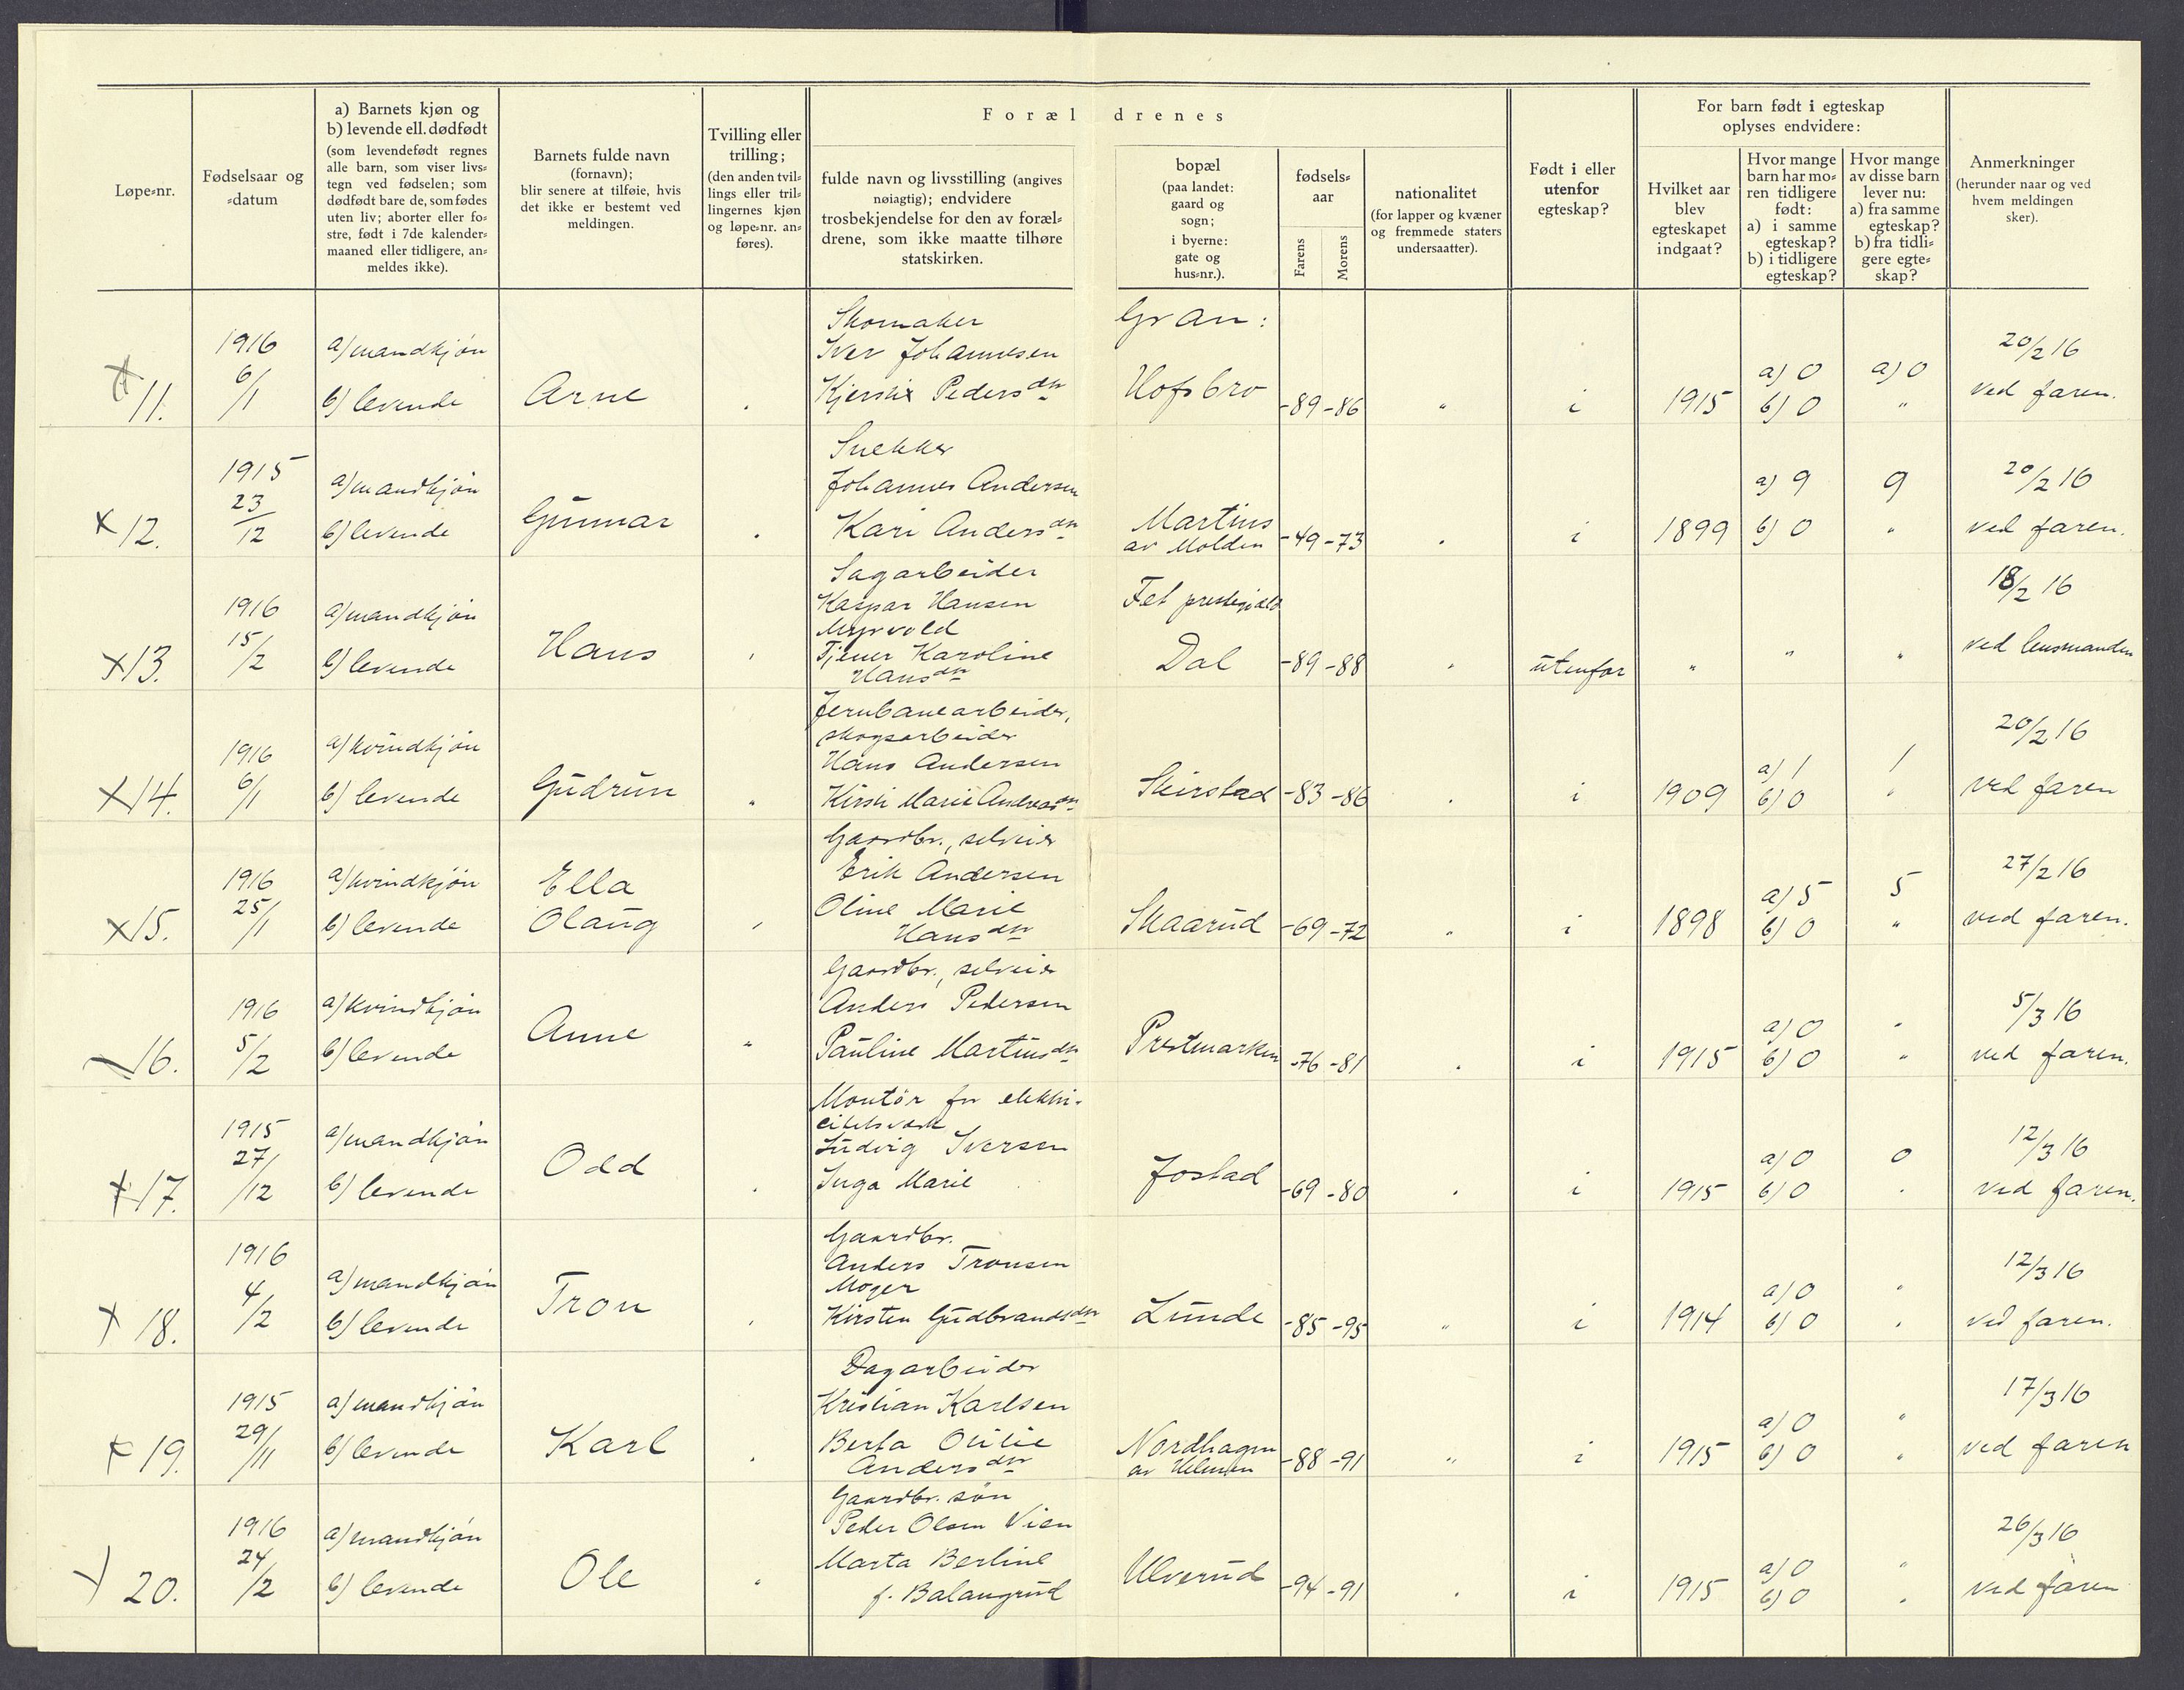 Forældrenes
For barn født i egteskap
oplyses endvidere:
Løpe-nr.
Fødselsaar og
-datum
a) Barnets kjøn og
b) levende ell. dødfødt
(som levendefødt regnes
alle barn, som viser livs-
tegn ved fødselen; som
dødfødt bare de, som fødes
uten liv; aborter eller fo-
stre, født i 7de kalender-
maaned eller tidligere, an-
meldes ikke).
Barnets fulde navn
(fornavn);
blir senere at tilføie, hvis
det ikke er bestemt ved
meldingen.
Tvilling eller
trilling;
(den anden tvil-
lings eller tril-
lingernes kjøn
og løpe-nr. an-
føres).
fulde navn og livsstilling (angives
nøiagtig); endvidere
trosbekjendelse for den av foræl-
drene, som ikke maatte tilhøre
statskirken.
bopæl
(paa landet:
gaard og
sogn;
i byerne:
gate og
hus-nr.).
fødsels-
aar
Farens
Morens
nationalitet
(for lapper og kvæner
og fremmede staters
undersaatter).
Født i eller
utenfor
egteskap?
Hvilket aar
blev
egteskapet
indgaat?
Hvor mange
barn har mo-
ren tidligere
født:
a) i samme
egteskap?
b) i tidligere
egteskap?
Hvor mange
av disse barn
lever nu:
a) fra samme
egteskap?
b) fra tidli-
gere egte-
skap?
Anmerkninger
(herunder naar og ved
hvem meldingen
sker).
11.
1916
6/1
a) mandkjøn
b) levende
Arne
Skomaker
Iver Johannesen
Kjersti Pedersdtr
Gran:
Hofsbro
-89 -86
"
i
1915
a) 0
b) 0
a) 0
"
20/2 16
ved faren.
12.
1915
23/12
a) mandkjøn
b) levende
Gunnar
Snekker
Johannes Andersen
Kari Andersdtr
Martins
av Molden
-49 -73
i
1899
a) 9
b) 0
9
"
20/2 16
ved faren.
13.
1916
15/2
a) mandkjøn
b) levende
Hans
Sagarbeider
Kaspar Hansen
Myrvold
Tjener Karoline
Hansdtr
Fet prestegjeld
Dal
-89 -88
"
utenfor
"
"
"
18/2 16
ved lensmanden
14.
1916
6/1
a) kvindkjøn
b) levende
Gudrun
"
Jernbanearbeider,
skogsarbeider
Hans Andersen
Kirsti Marie Andreasdtr
Skirstad
-83 -86
i
1909
a) 1
b) 0
1
"
20/2 16
ved faren
15.
1916
25/1
a) kvindkjøn
b) levende
Ella
Olaug
Gaardbr., selveier
Erik Andersen
Oline Marie
Hansdtr
Skaarud
-69 -72
"
i
1898
a) 5
b) 0
5
"
27/2 16
ved faren.
16.
1916
5/2
a) kvindkjøn
b) levende
Anne
"
Gaardbr., selveier
Anders Pedersen
Pauline Martinsdtr
Prestmarken
-76 -81
i
1915
a) 0
b) 0
"
"
5/3 16
ved faren.
17.
1915
27/12
a) mandkjøn
b) levende
Odd
Montør for elektri-
citetsverk
Ludvig Iversen
Inga Marie
Jostad
-69 -80
i
1915
a) 0
b) 0
0
12/3 16
ved faren.
18.
1916
4/2
a) mandkjøn
b) levende
Tron
Gaardbr.
Anders Tronsen
Moger
Kirsten Gudbrandsdtr
Lunde
-85 -95
"
i
1914
a) 0
b) 0
"
12/3 16
ved faren.
19.
1915
29/11
a) mandkjøn
b) levende
Karl
Dagarbeider
Kristian Karlsen
Berta Otilie
Andersdtr
Nordhagen
-88 -91
"
i
1915
a) 0
b) 0
"
"
17/3 16
ved faren
20.
1916
24/2
a) mandkjøn
b) levende
Ole
"
Gaardbr. søn
Peder Olsen Vien
Marta Berline
f. Balangrud
Ulverud
-94 -91
i
1915
a) 0
b) 0
"
26/3 16
ved faren